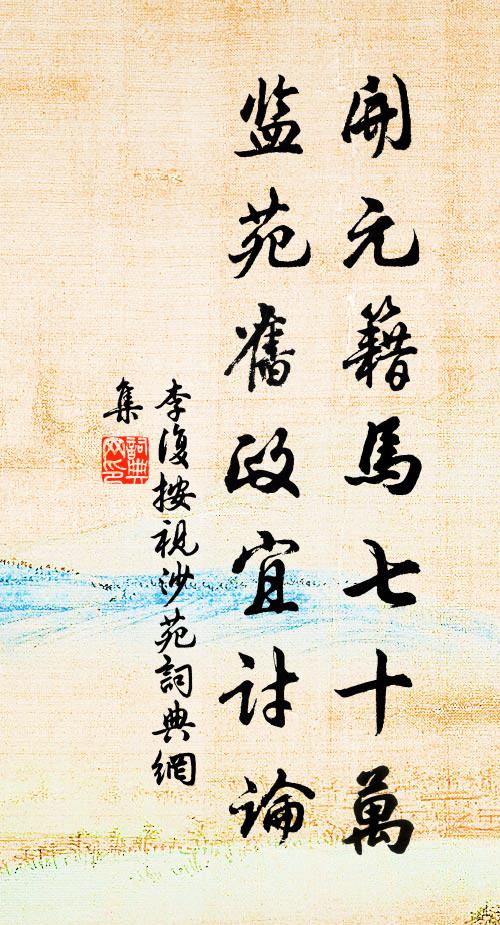 開元籍馬七十萬
监苑舊政宜討論
李復按視沙苑詞典網
集
詞典